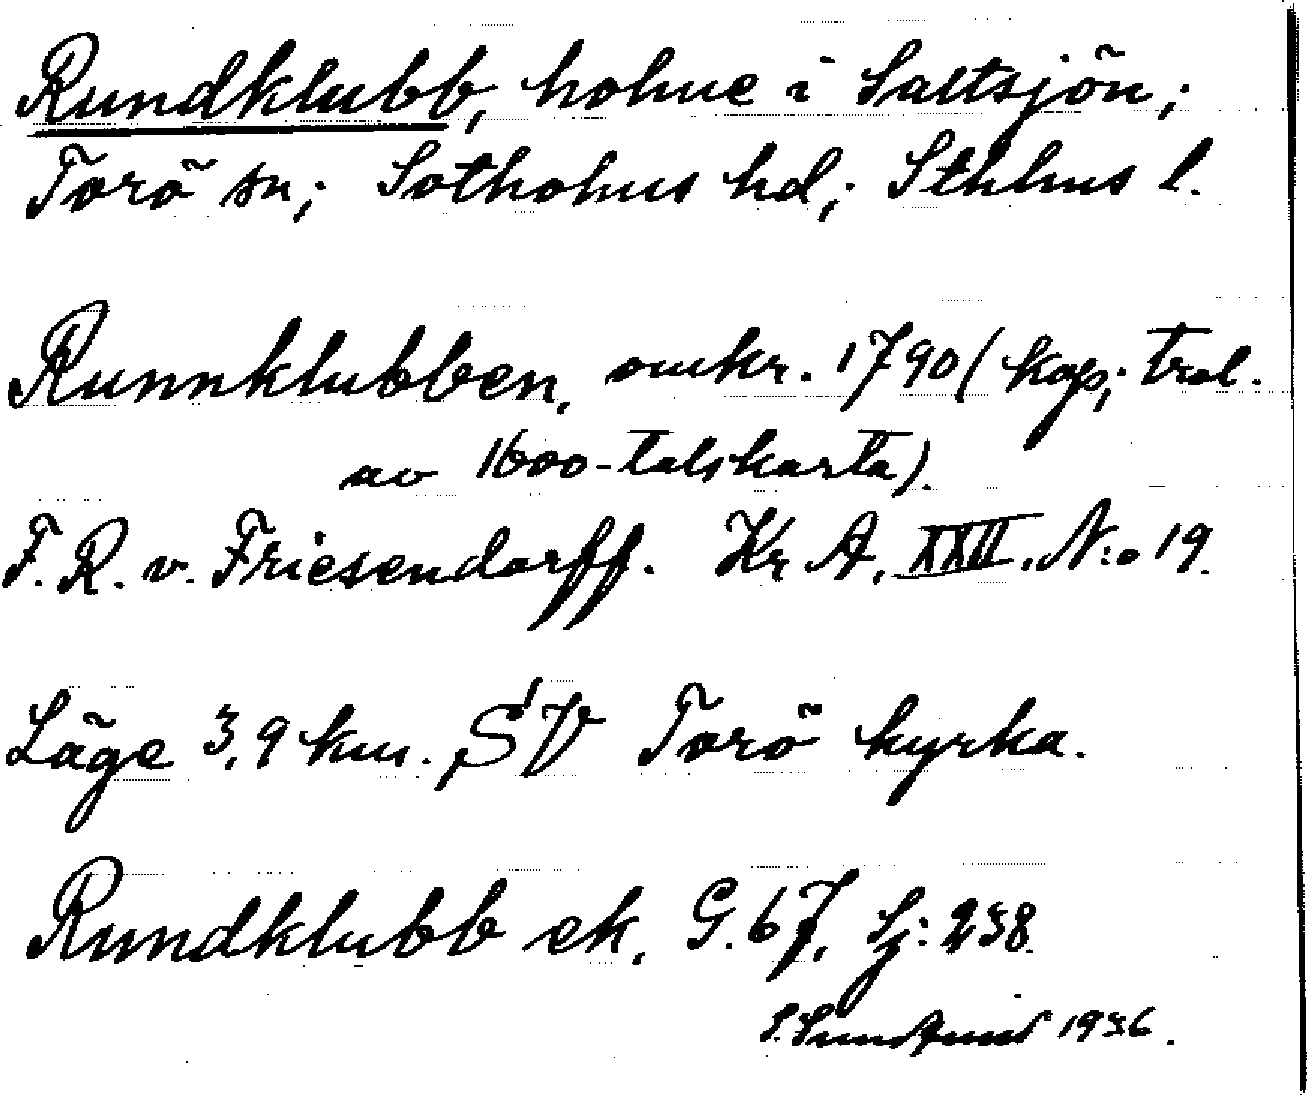 Rundklubb, holme i Saltsjön;
Torö sn; Sotholms hd; Sthlms l.
Runnklubben, omkr. 1790 (kop; trol.
av 1600-talskarta).
F. R. v. Friesendorff. Kr A. XXII. N:o 19.
Läge 3,9 km. SV Torö kyrka.
Rundklubb ek. G. 67. Sj: 238.
1936.